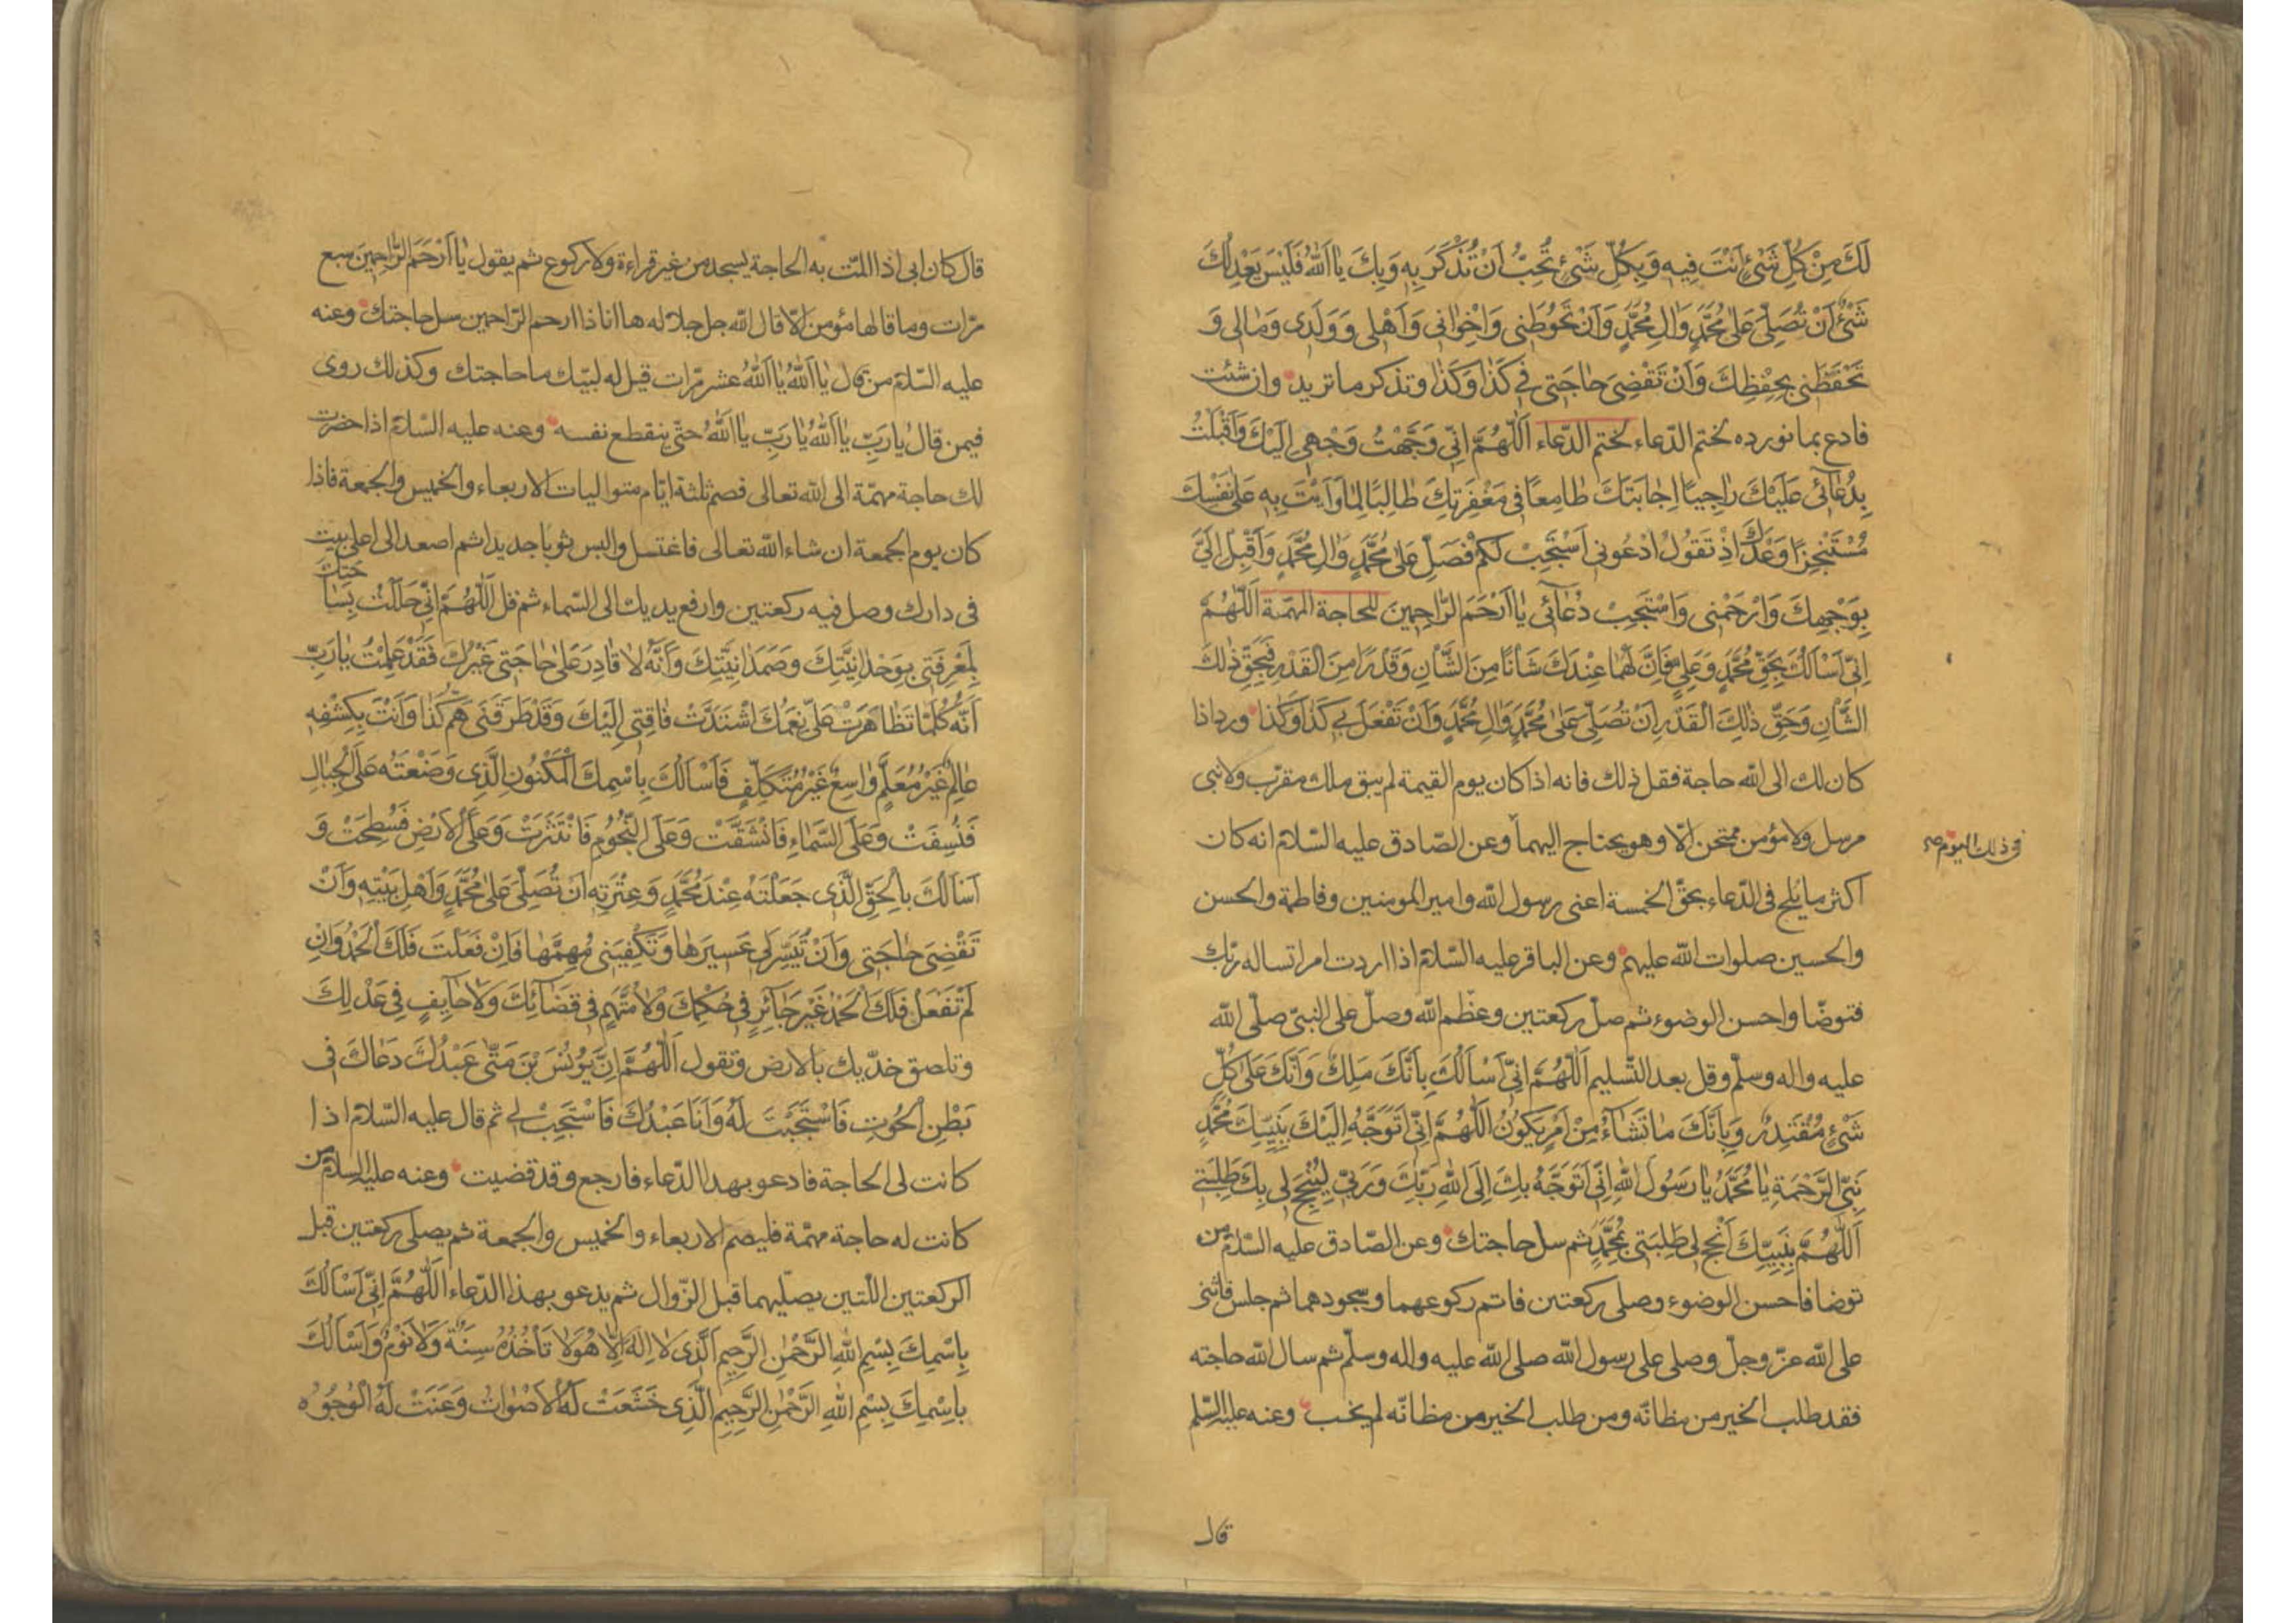 لَكَ مِنْ كُلِّ شَيْءٍ اَنْتَ فِيهِ وَبِكُلِّ شَيْءٍ تُحِبُّ اَنْ تُذْكَرَ بِهِ وَبِكَ يٰا اَللهُ فَلَيْسَ يَعْدِلُكَ
شَيْءٌ اَنْ تُصَلِّيَ عَلٰى مُحَمَّدٍ وَاٰلِ مُحَمَّدٍ وَاَنْ تَحُوطَنِي وَاِخْوٰانِي وَاَهْلِي وَوَلَدِي وَمٰالِي وَ
تَحْفَظَنِي بِحِفْظِكَ وَاَنْ تَقْضِيَ حٰاجَتِي فِي كَذٰا وَكَذٰا وتذكر ما تريد وان شئت
فادع بما نورده لختم الدّعاء لختم الدّعاء اَللّٰهُمَّ اِنِّي وَجَّهْتُ وَجْهِي اِلَيْكَ وَاَقْبَلْتُ
بِدُعٰائِي عَلَيْكَ رٰاجِيًا اِجٰابَتَكَ طٰامِعًا فِي مَغْفِرَتِكَ طٰالِبًا لِمٰا وَاَيْتَ بِهِ عَلٰى نَفْسِكَ
مُسْتَنْجِزًا وَعْدَكَ اِذْ تَقُولُ ادْعُونِي اَسْتَجِبْ لَكُمْ فَصَلِّ عَلٰى مُحَمَّدٍ وَاٰلِ مُحَمَّدٍ وَاَقْبِلْ اِلَيَّ
بِوَجْهِكَ وَارْحَمْنِي وَاسْتَجِبْ دُعٰائِي يٰا اَرْحَمَ الرّٰاحِمِينَ للحاجة المهمّة اَللّٰهُمَّ
اِنِّي اَسْاَلُكَ بِحَقِّ مُحَمَّدٍ وَعَلِيٍّ فَاِنَّ لَهُمٰا عِنْدَكَ شَاْنًا مِنَ الشَّاْنِ وَقَدْرًا مِنَ الْقَدْرِ فَبِحَقِّ ذٰلِكَ
الشَّاْنِ وَحَقِّ ذٰلِكَ الْقَدْرِ اَنْ تُصَلِّيَ عَلٰى مُحَمَّدٍ وَاٰلِ مُحَمَّدٍ وَاَنْ تَفْعَلَ بِي كَذٰا وَكَذٰا ورد اذا
كان لك الى الله حاجة فقل ذلك فانه اذا كان يوم القيمة لم يبق ملك مقرّب ولا نبى
مرسل ولا مؤمن ممتحن الّا وهو يحتاج اليهما وعن الصّادق عليه السّلام انه كان
فى ذلك اليوم صح
اكثر ما يلح فى الدّعاء بحقّ الخمسة اعنى رسول الله وامير المومنين وفاطمة والحسن
والحسين صلوات الله عليهم وعن الباقر عليه السّلام اذا اردت امرا تساله ربّك
فتوضّا واحسن الوضوء ثم صلّ ركعتين وعظّم الله وصلّ على النبىّ صلّى الله
عليه واله وسلّم وقل بعد التّسليم اَللّٰهُمَّ اِنِّي اَسْاَلُكَ بِاَنَّكَ مَلِكٌ وَاَنَّكَ عَلٰى كُلِّ
شَيْءٍ مُقْتَدِرٌ وَبِاَنَّكَ مٰا تَشٰاءُ مِنْ اَمْرٍ يَكُونُ اَللّٰهُمَّ اِنِّي اَتَوَجَّهُ اِلَيْكَ بِنَبِيِّكَ مُحَمَّدٍ
نَبِيِّ الرَّحْمَةِ يٰا مُحَمَّدُ يٰا رَسُولَ اللهِ اِنِّي اَتَوَجَّهُ بِكَ اِلَى اللهِ رَبِّكَ وَرَبِّي لِيُنْجِحَ لِي بِكَ طَلِبَتِي
اَللّٰهُمَّ بِنَبِيِّكَ اَنْجِحْ لِي طَلِبَتِي بِمُحَمَّدٍ ثم سل حاجتك وعن الصّادق عليه السّلام من
توضا فاحسن الوضوء وصلى ركعتين فاتم ركوعهما وسجودهما ثم جلس فاثنى
على الله عزّ وجلّ وصلى على رسول الله صلى الله عليه واله وسلّم ثم سال الله حاجته
فقد طلب الخير من مظانّه ومن طلب الخير من مظانّه لم يخب وعنه عليه السّلم
قال
قال كان ابى اذا المّت به الحاجة يسجد من غير قراءة ولا ركوع ثم يقول يٰا اَرْحَمَ الرّٰاحِمِينَ سبع
مرّات وما قالها مؤمن الّا قال الله جل جلاله ها انا ذا ارحم الرّاحمين سل حاجتك وعنه
عليه السّلام من قال يٰا اَللهُ يٰا اَللهُ عشر مرّات قيل له لبّيك ما حاجتك وكذلك روى
فيمن قال يٰا رَبِّ يٰا اَللهُ يٰا رَبِّ يٰا اَللهُ حتّى ينقطع نفسه وعنه عليه السّلام اذا حضرت
لك حاجة مهمّة الى الله تعالى فصم ثلثة ايّام متواليات الاربعاء والخميس والجمعة فاذا
كان يوم الجمعة ان شاء الله تعالى فاغتسل والبس ثوبا جديدا ثم اصعد الى اعلى بيت
فى دارك وصل فيه ركعتين وارفع يديك الى السّماء ثم قل اَللّٰهُمَّ اِنِّي حَلَلْتُ بِسٰاحَتِكَ
لِمَعْرِفَتِي بِوَحْدٰانِيَّتِكَ وَصَمَدٰانِيَّتِكَ وَاَنَّهُ لٰا قٰادِرَ عَلٰى حٰاجَتِي غَيْرُكَ فَقَدْ عَلِمْتُ يٰا رَبِّ
اَنَّهُ كُلَّمٰا تَظٰاهَرَتْ عَلَيَّ نِعَمُكَ اشْتَدَّتْ فٰاقَتِي اِلَيْكَ وَقَدْ طَرَقَنِي هَمُّ كَذٰا وَاَنْتَ بِكَشْفِهِ
عٰالِمٌ غَيْرُ مُعَلَّمٍ وٰاسِعٌ غَيْرُ مُتَكَلِّفٍ فَاَسْاَلُكَ بِاسْمِكَ الْمَكْنُونِ الَّذِي وَضَعْتَهُ عَلَى الْجِبٰالِ
فَنُسِفَتْ وَعَلَى السَّمٰاءِ فَانْشَقَّتْ وَعَلَى النُّجُومِ فَانْتَثَرَتْ وَعَلَى الْاَرْضِ فَسُطِحَتْ وَ
اَسْاَلُكَ بِالْحَقِّ الَّذِي جَعَلْتَهُ عِنْدَ مُحَمَّدٍ وَعِتْرَتِهِ اَنْ تُصَلِّيَ عَلٰى مُحَمَّدٍ وَاَهْلِ بَيْتِهِ وَاَنْ
تَقْضِيَ حٰاجَتِي وَاَنْ تُيَسِّرَ لِي عَسِيرَهٰا وَتَكْفِيَنِي مُهِمَّهٰا فَاِنْ فَعَلْتَ فَلَكَ الْحَمْدُ وَاِنْ
لَمْ تَفْعَلْ فَلَكَ الْحَمْدُ غَيْرَ جٰائِرٍ فِي حُكْمِكَ وَلٰا مُتَّهَمٍ فِي قَضٰائِكَ وَلٰا حٰايِفٍ فِي عَدْلِكَ
وتلصق خدّيك بالارض وتقول اَللّٰهُمَّ اِنَّ يُونُسَ بْنَ مَتّٰى عَبْدُكَ دَعٰاكَ فِي
بَطْنِ الْحُوتِ فَاسْتَجَبْتَ لَهُ وَاَنَا عَبْدُكَ فَاسْتَجِبْ لِي ثم قال عليه السّلام اذا
كانت لى الحاجة فادعو بهذا الدّعاء فارجع وقد قضيت وعنه عليه السلام من
كانت له حاجة مهمّة فليصم الاربعاء والخميس والجمعة ثم يصلى ركعتين قبل
الركعتين اللّتين يصلّيهما قبل الزّوال ثم يدعو بهذا الدّعاء اَللّٰهُمَّ اِنِّي اَسْاَلُكَ
بِاسْمِكَ بِسْمِ اللهِ الرَّحْمٰنِ الرَّحِيمِ الَّذِي لٰا اِلٰهَ اِلّٰا هُوَ لٰا تَاْخُذُهُ سِنَةٌ وَلٰا نَوْمٌ وَاَسْاَلُكَ
بِاسْمِكَ بِسْمِ اللهِ الرَّحْمٰنِ الرَّحِيمِ الَّذِي خَشَعَتْ لَهُ الْاَصْوٰاتُ وَعَنَتْ لَهُ الْوُجُوهُ